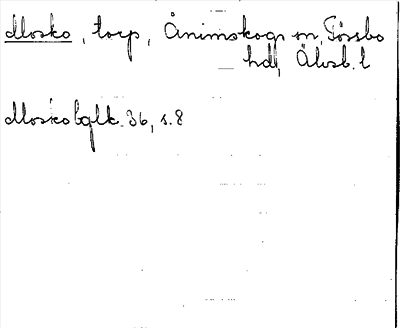 Mosko, torp, Ånimskogs sn, Tössbo
hd, Älvsb. l
Mosko bglk. 36, s. 8